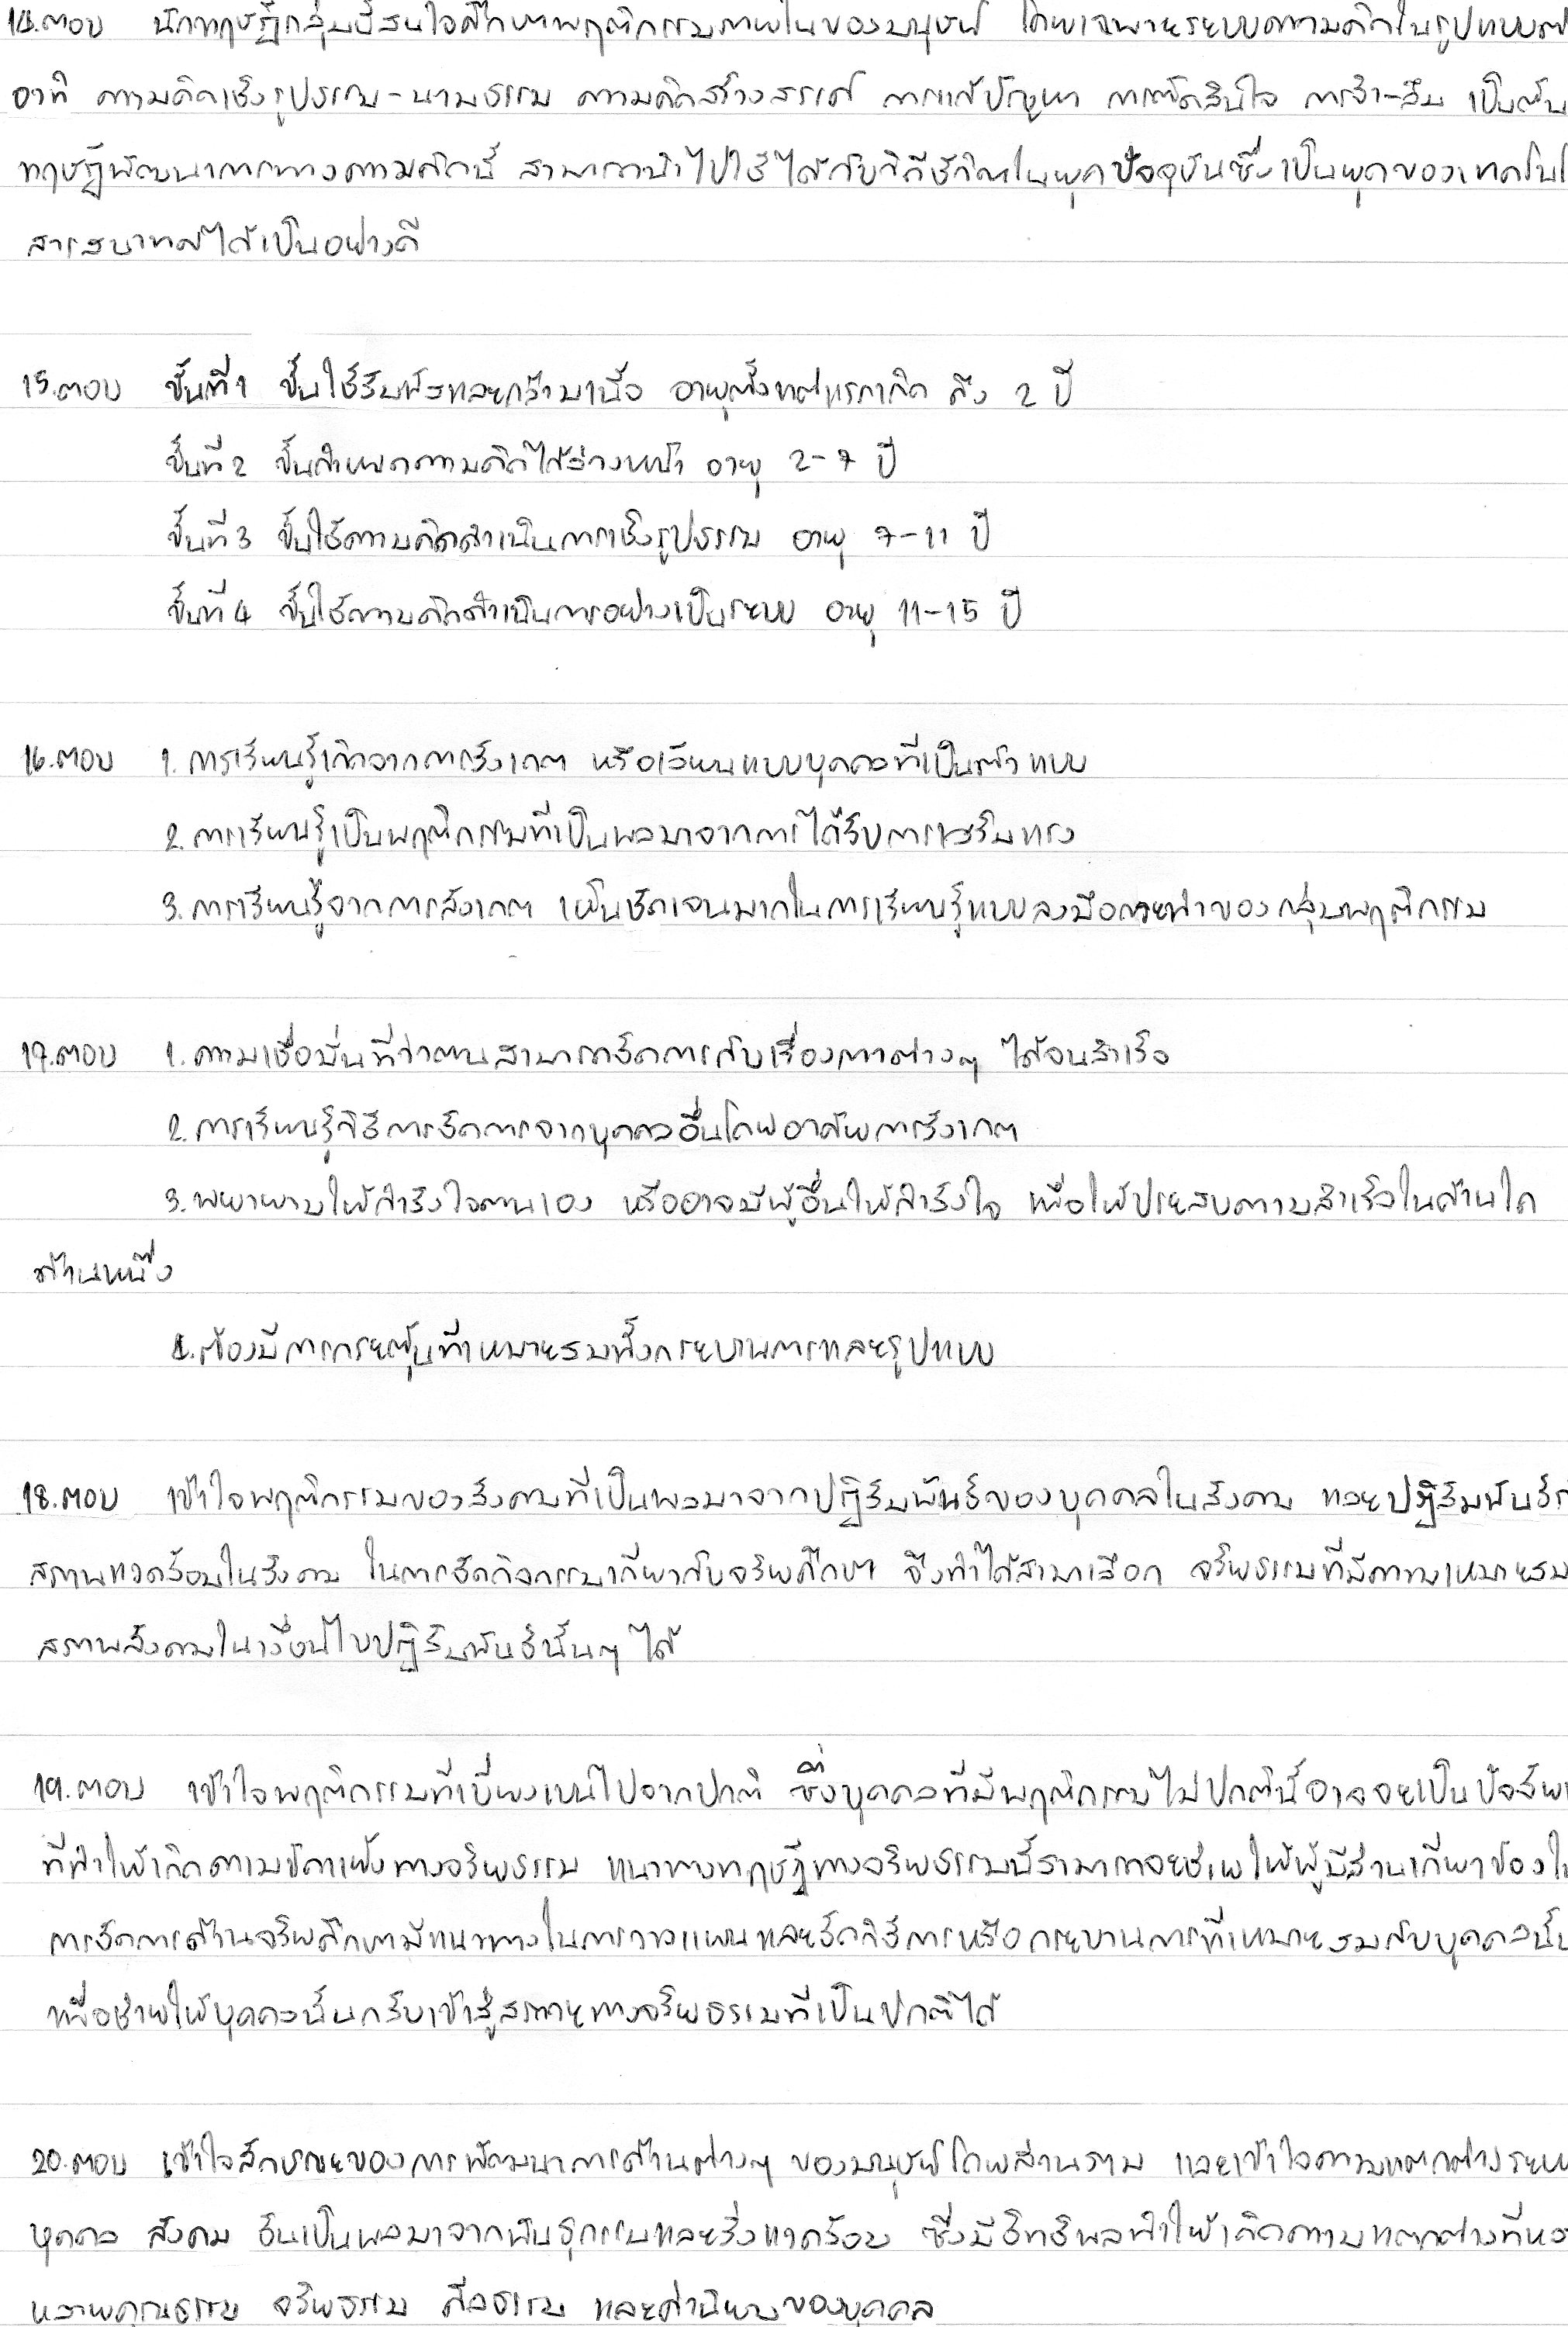 14.ตอบ นักทฤษฎีกลุ่มนี้สนใจศึกษาพฤติกรรมภายในของมนุษย์ โดยเฉพาะระบบความคิดในรูปแบบต่
อาทิ ความคิดเชิงรูปธรรม-นามธรรม ความคิดสร้างสรรค์ การแก้ปัญหา การตัดสินใจ การจำ-ลืม เป็นต้น
ทฤษฎีพัฒนาการทางความคิดนี้ สามารถนำไปใช้ได้กับวิถีชีวิตในยุคปัจจุบันซึ่งเป็นยุคของเทคโนโ
สารสนเทศได้เป็นอย่างดี
15.ตอบ ขั้นที่1 ขั้นใช้สัมผัสและกล้ามเนื้อ อายุตั้งแต่แรกเกิด ถึง 2 ปี
ขั้นที่2 ขั้นกำหนดความคิดไว้ล่วงหน้า อายุ 2-7 ปี
ขั้นที่3 ขั้นใช้ความคิดดำเนินการเชิงรูปธรรม อายุ 7-11 ปี
ขั้นที่4 ขั้นใช้ความคิดดำเนินการอย่างเป็นระบบ อายุ 11-15 ปี
16.ตอบ 1.การเรียนรู้เกิดจากการสังเกต หรือเลียนแบบบุคคลที่เป็นตัวแบบ
2.การเรียนรู้เป็นพฤติกรรมที่เป็นผลมาจากการได้รับการเสริมแรง
3.การเรียนรู้จากการสังเกต เห็นชัดเจนมากในการเรียนรู้แบบลงมือกระทำของกลุ่มพฤติกรรม
17.ตอบ 1.ความเชื่อมั่นที่ว่าตนสามารถจัดการกับเรื่องราวต่างๆ ได้จนสำเร็จ
2.การเรียนรู้วิธีการจัดการจากบุคคลอื่นโดยอาศัยการสังเกต
3.พยายามให้กำลังใจตนเอง หรืออาจมีผู้อื่นให้กำลังใจ เพื่อให้ประสบความสำเร็จในด้านใด
ด้านหนึ่ง
4.ต้องมีการกระตุ้นที่เหมาะสมทั้งกระบวนการและรูปแบบ
18.ตอบ เข้าใจพฤติกรรมของสังคมที่เป็นผลมาจากปฏิสัมพันธ์ของบุคคลในสังคม และปฏิสัมพันธ์กั
สภาพแวดล้อมในสังคม ในการจัดกิจกรรมเกี่ยวกับจริยศึกษา จึงทำได้สามาเลือก จริยธรรมที่มีความเหมาะสม
สภาพสังคมในเงื่อนไขปฏิสัมพันธ์นั้นๆ ได้
19.ตอบ เข้าใจพฤติกรรมที่เบี่ยงเบนไปจากปกติ ซึ่งบุคคลที่มีพฤติกรรมไม่ปกตินี้อาจจะเป็นปัจจัย
ที่ทำให้เกิดความขัดแย้งทางจริยธรรม แนวทางทฤษฎีทางจริยธรรมนี้สามารถจะช่วยให้ผู้มีส่วนเกี่ยวข้องใน
การจัดการด้านจริยศึกษามีแนวทางในการวางแผนและจัดวิธีการหรือกระบวนการที่เหมาะสมกับบุคคลนั้น
เพื่อช่วยให้บุคคลนั้นกลับเข้าสู่สภาวะทางจริยธรรมที่เป็นปกติได้
20.ตอบ เข้าใจลักษณะของการพัฒนาการด้านต่างๆ ของมนุษย์โดยส่วนรวม และเข้าใจความแตกต่างระหว
บุคคล สังคม อันเป็นผลมาจากพันธุกรรมและสิ่งแวดล้อม ซึ่งมีอิทธิพลทำให้เกิดความแตกต่างที่หล
หลายคุณธรรม จริยธรรม ศีลธรรม และค่านิยมของบุคคล